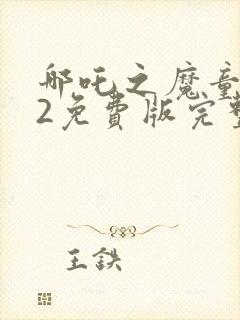 哪吒之魔童
2免費版完整
王鉄